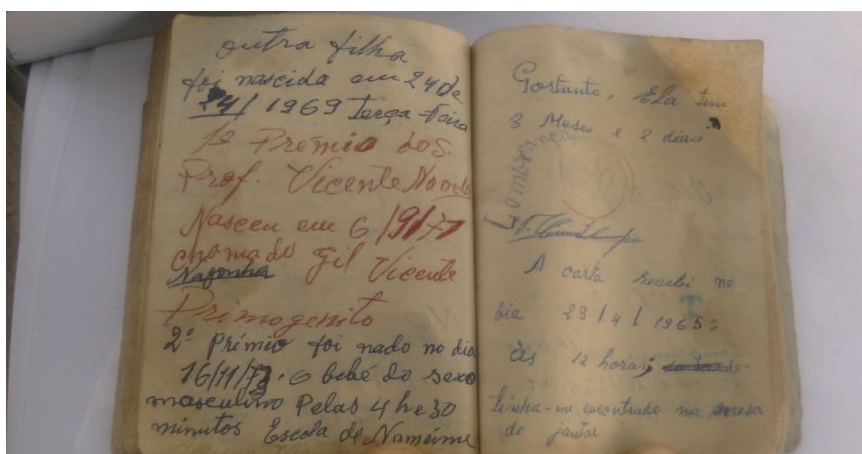 outra filha
foi nascida em 24 de
24/ 1969 terça-Faira
1º Prémio dos.
Prof. Vicente
Nasceu em 6/9/71
chamado Gil Vicente
Primogenito
2º Prémio foi nado no dia
16/11/73. O bebé do sexo
masculino Pelas 4 h e 30
minutos Escola de Nameime
Portanto, Ela tem
3 Meses e 2 dias
Lembrança
A carta recebi no
dia 23/4/1965;
às 12 horas;
tinha-me encontrado na mesa
de jantar